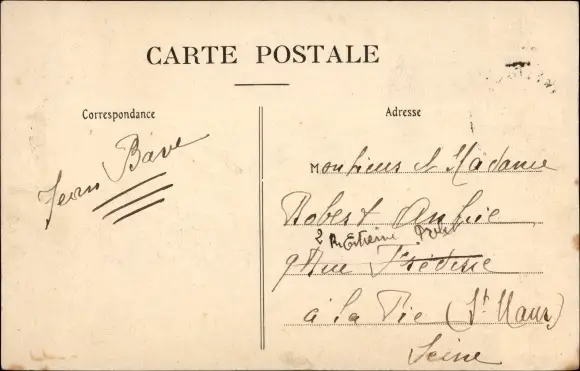 CARTE POSTALE
Correspondance
Adresse
Jean Bave
Monsieur et Madame
Robert
2 R. Estienne
9 Rue Frédéric
à la Pie (St. Maur)
Seine